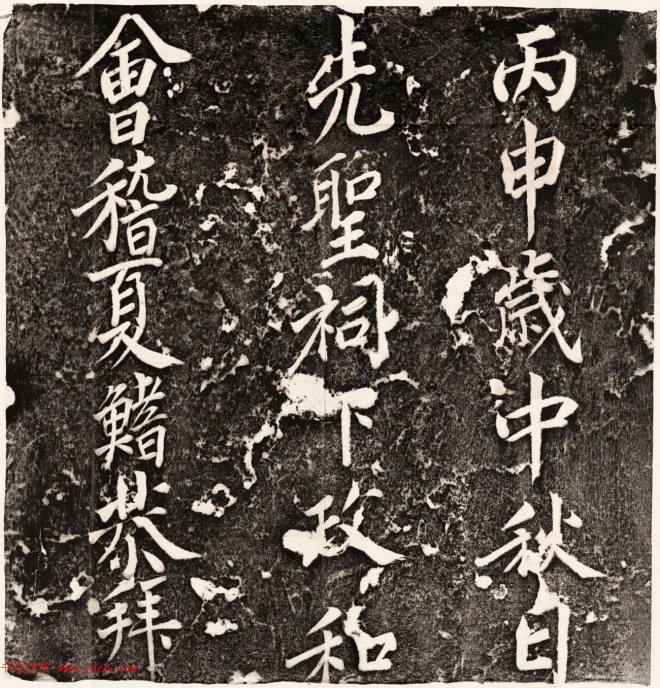 丙申歲中秋日
先聖祠下政和
會稽夏鰭恭拜